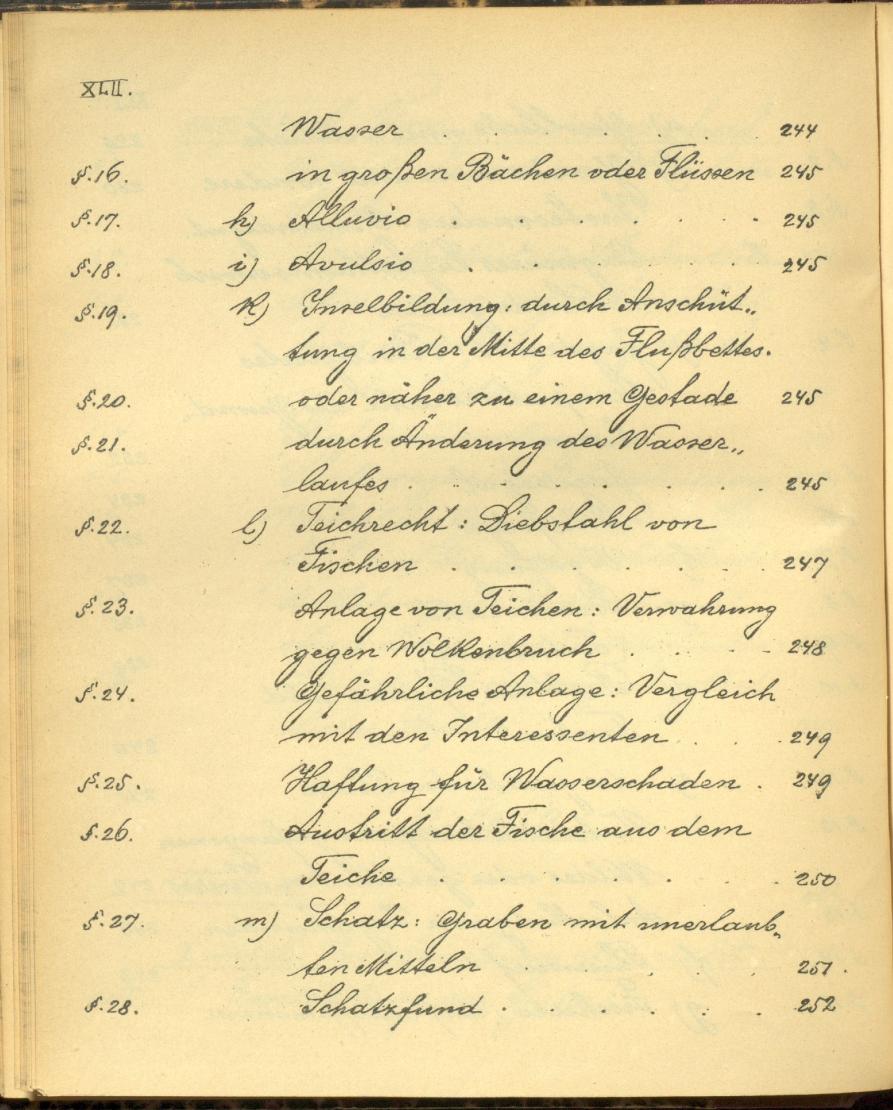 XLII.
Wasser . . . . . 244
§.16. in großen Bächen oder Flüssen 245
§.17. h) Alluvio . . . . . 245
§.18. i) Avulsio . . . . . 245
§.19. k) Inselbildung: durch Anschüt„
tung in der Mitte des Flußbettes.
§.20. oder näher zu einem Gestade 245
§.21. durch Änderung des Wasser„
laufes . . . . . 245
§.22. l) Teichrecht: Diebstahl von
Fischen . . . . . 247
§.23. Anlage von Teichen: Verwahrung
gegen Wolkenbruch . . . . 248
§.24. Gefährliche Anlage: Vergleich
mit den Interessenten . . . 249
§.25. Haftung für Wasserschaden . 249
§.26. Austritt der Fische aus dem
Teiche . . . . . 250
§.27. m) Schatz: Graben mit unerlaub„
ten Mitteln . . . . 251.
§.28. Schatzfund . . . . . 252